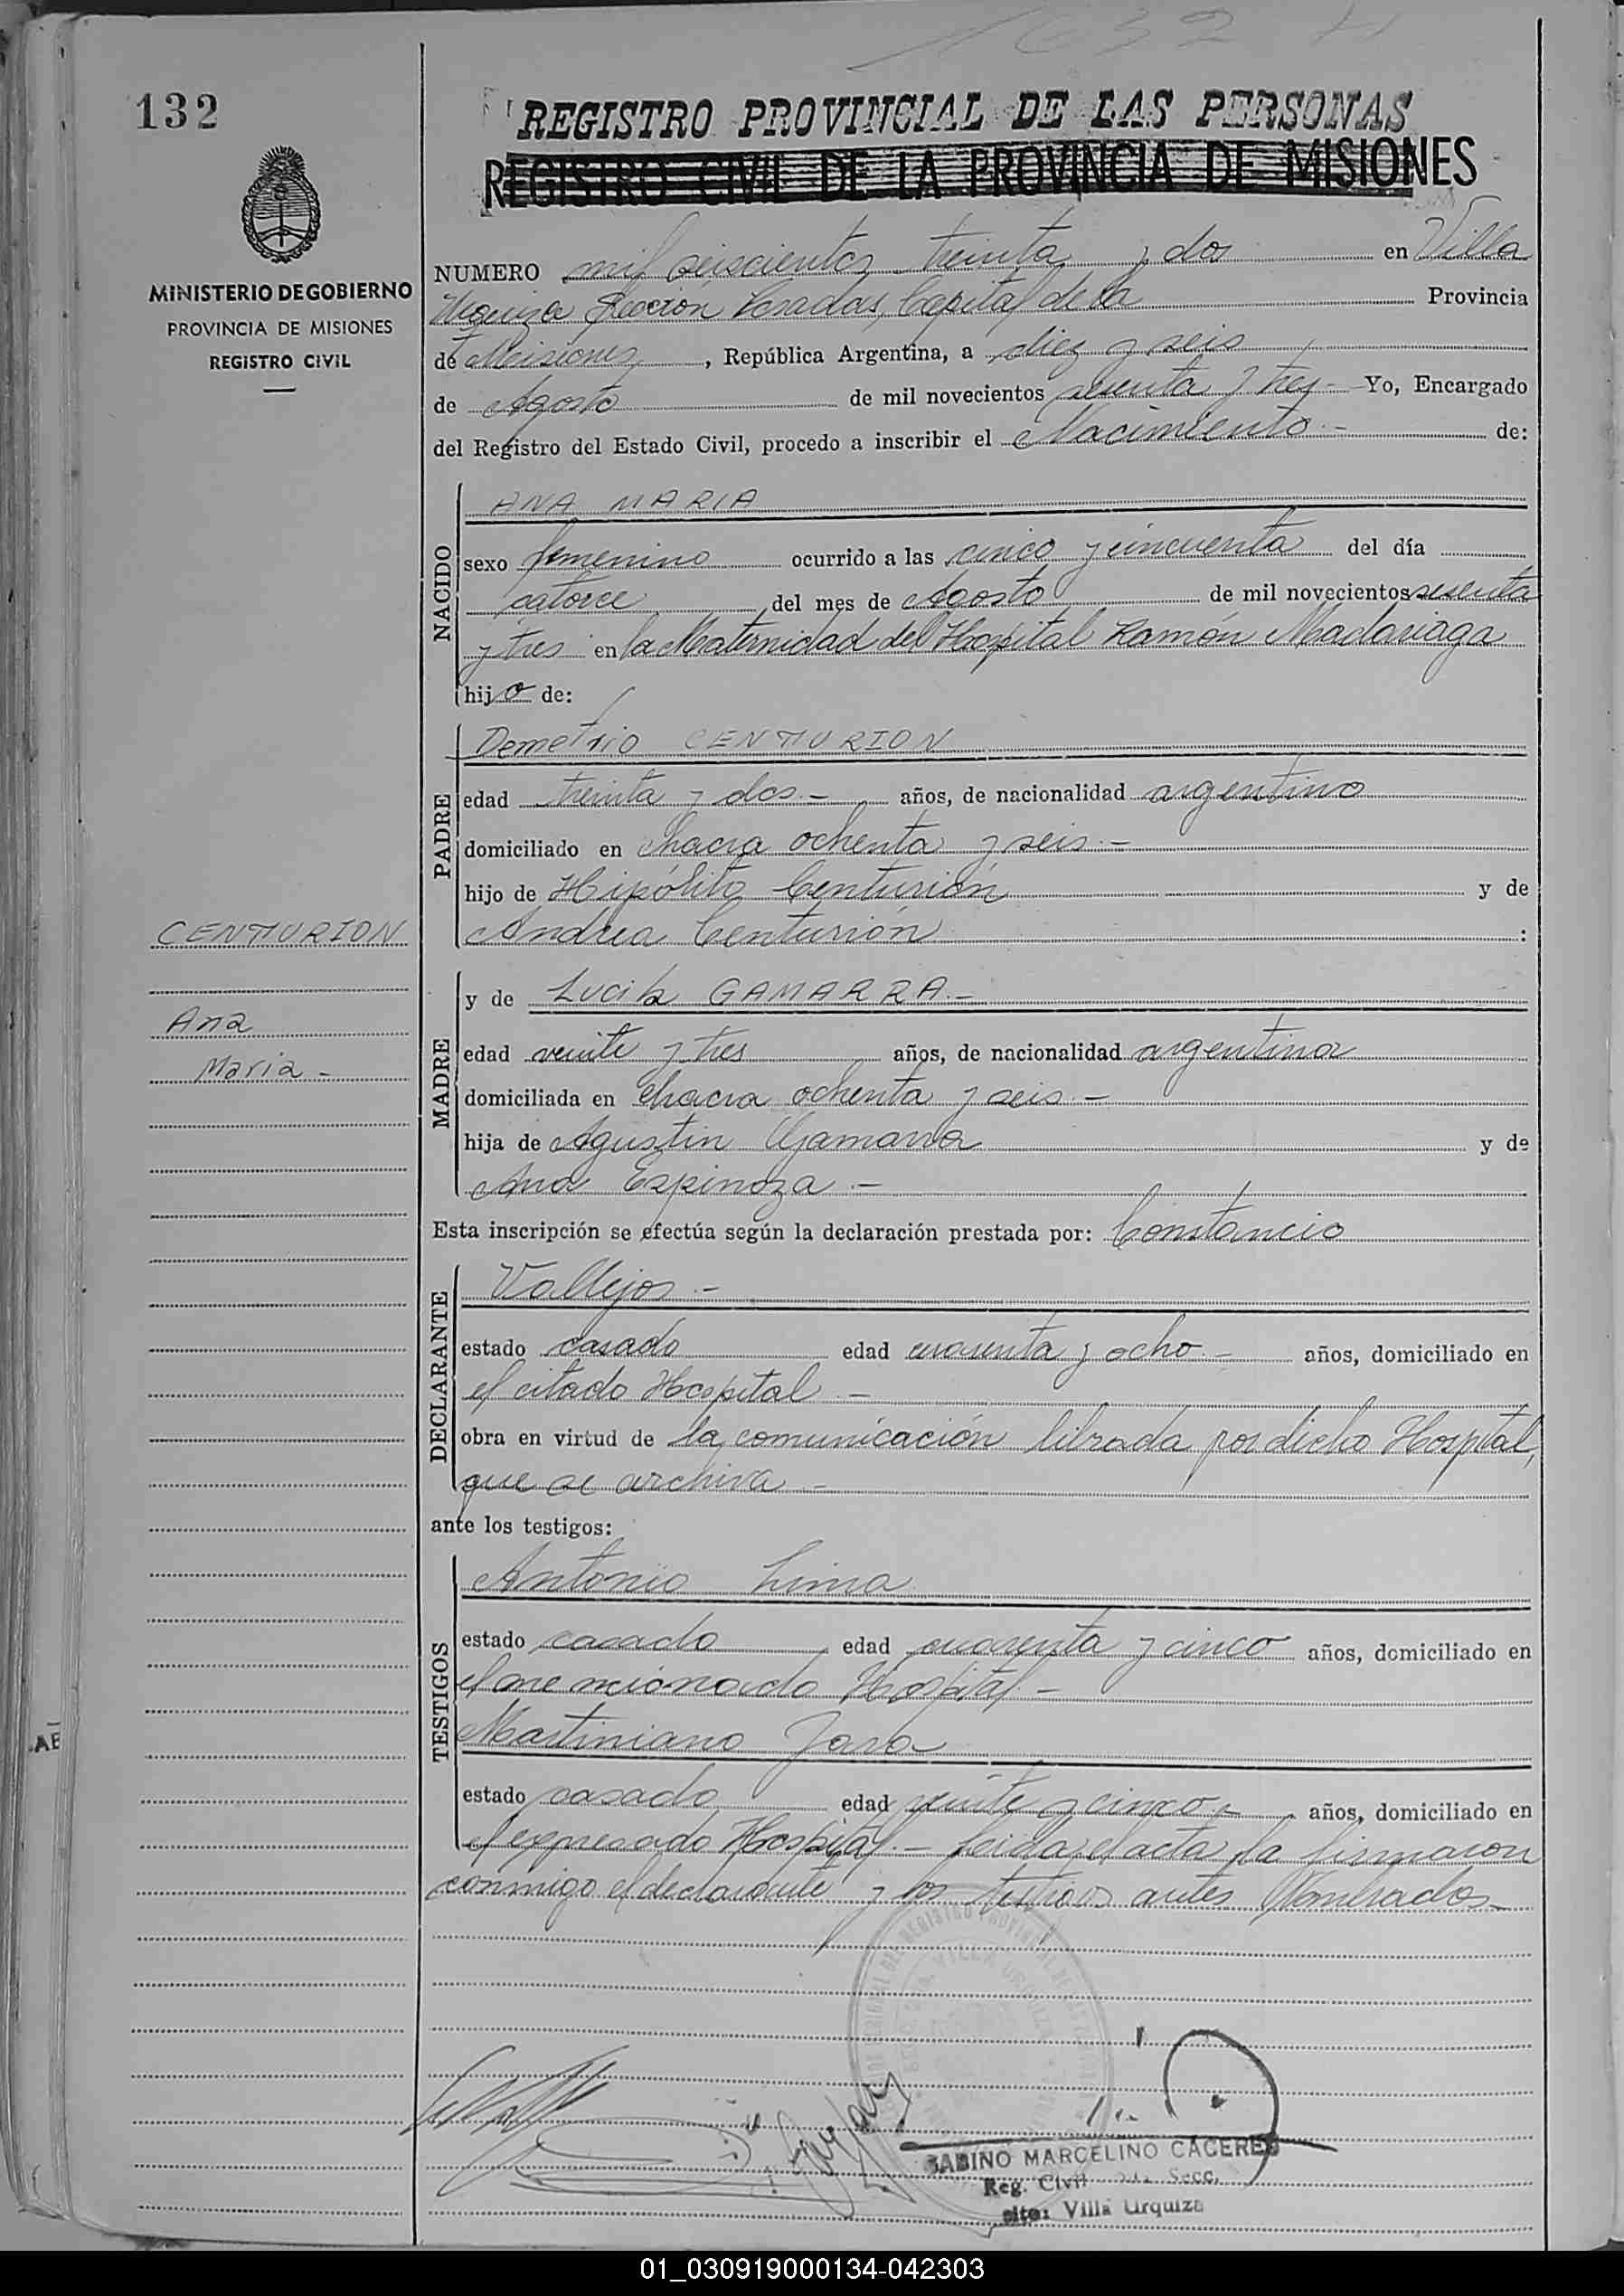 1632
132
REGISTRO PROVINCIAL DE LAS PERSONAS
REGISTRO CIVIL DE LA PROVINCIA DE MISIONES
MINISTERIO DE GOBIERNO
PROVINCIA DE MISIONES
REGISTRO CIVIL
NUMERO mil seiscientos treinta y dos en Villa
Urquiza Sección Posadas, Capital de la Provincia
de Misiones, República Argentina, a diez y seis
de Agosto de mil novecientos sesenta y tres.- Yo, Encargado
del Registro del Estado Civil, procedo a inscribir el Nacimiento.- de:
NACIDO
ANA MARIA
sexo femenino ocurrido a las cinco y cincuenta del día
catorce del mes de Agosto de mil novecientos sesenta
y tres en la Maternidad del Hospital Ramón Madariaga
hijo de:
PADRE
Demetrio CENTURION
edad treinta y dos.- años, de nacionalidad argentino
domiciliado en Chacra ochenta y seis.-
hijo de Hipólito Centurión y de
Andrea Centurión :
CENTURION
Ana
Maria -
MADRE
y de Lucila GAMARRA.-
edad veinte y tres años, de nacionalidad argentina
domiciliada en Chacra ochenta y seis.-
hija de Agustin Gamarra y de
Ana Espinoza.-
Esta inscripción se efectúa según la declaración prestada por: Constancio
DECLARANTE
Vallejos.-
estado casado edad cuarenta y ocho.- años, domiciliado en
el citado Hospital.-
obra en virtud de la comunicación librada por dicho Hospital,
que se archiva.-
ante los testigos:
TESTIGOS
Antonio Lima
estado casado edad cuarenta y cinco años, domiciliado en
el mencionado Hospital.-
Martiniano Jara
estado casado edad veinte y cinco.- años, domiciliado en
el expresado Hospital.- Leida el acta la firmaron
conmigo el declarante y los testigos antes Nombrados.-
VILLA URQUIZA
SABINO MARCELINO CACERES
Reg. Civil Secc.
sito: Villa Urquiza
01_030919000134-042303